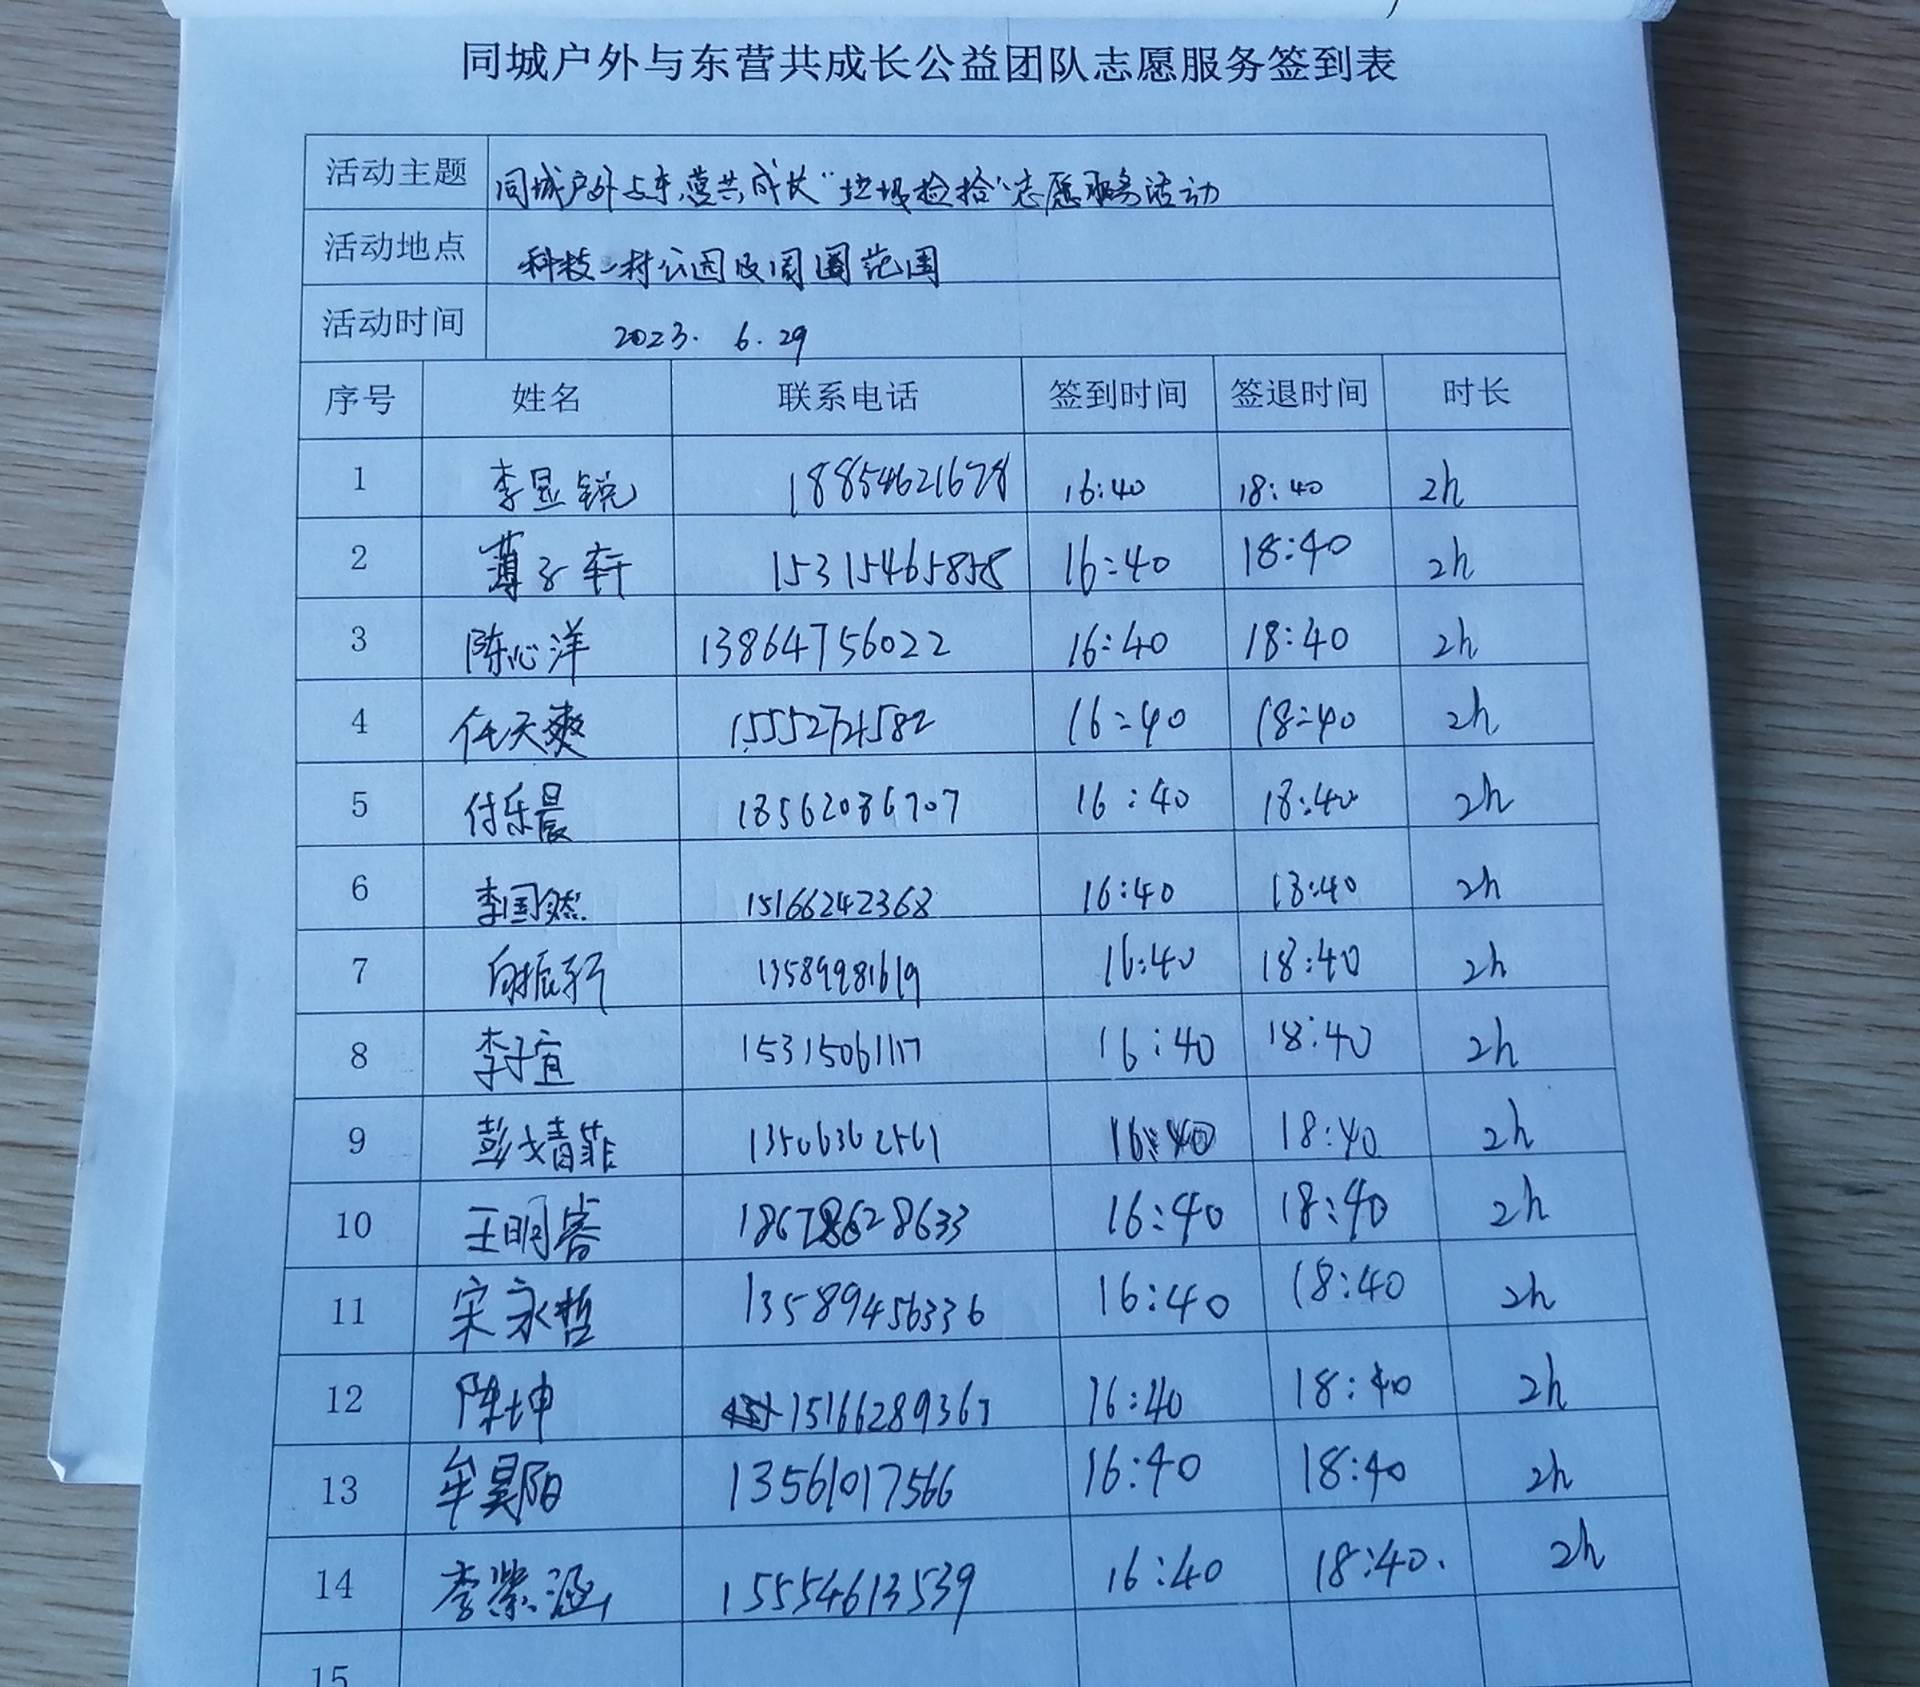 同城户外与东营共成长公益团队志愿服务签到表
活动主题 同城户外与东营共成长“垃圾捡拾”志愿服务活动
活动地点 科技二村公园及周围范围
活动时间 2023. 6. 29
序号 姓名 联系电话 签到时间 签退时间 时长
1 李显锐 18854621678 16:40 18:40 2h
2 薄子轩 15315465858 16:40 18:40 2h
3 陈心洋 13864756022 16:40 18:40 2h
4 任天爽 16:40 18:40 2h
5 付乐晨 18562086707 16:40 18:40 2h
6 李国燃 15166242368 16:40 18:40 2h
7 13589981619 16:40 18:40 2h
8 李子宜 15315061117 16:40 18:40 2h
9 彭婧菲 13506362561 16:40 18:40 2h
10 王明睿 18678628633 16:40 18:40 2h
11 宋永哲 13589456336 16:40 18:40 2h
12 陈坤 15166289367 16:40 18:40 2h
13 牟昊阳 13561017566 16:40 18:40 2h
14 李紫涵 15554613539 16:40 18:40. 2h
15